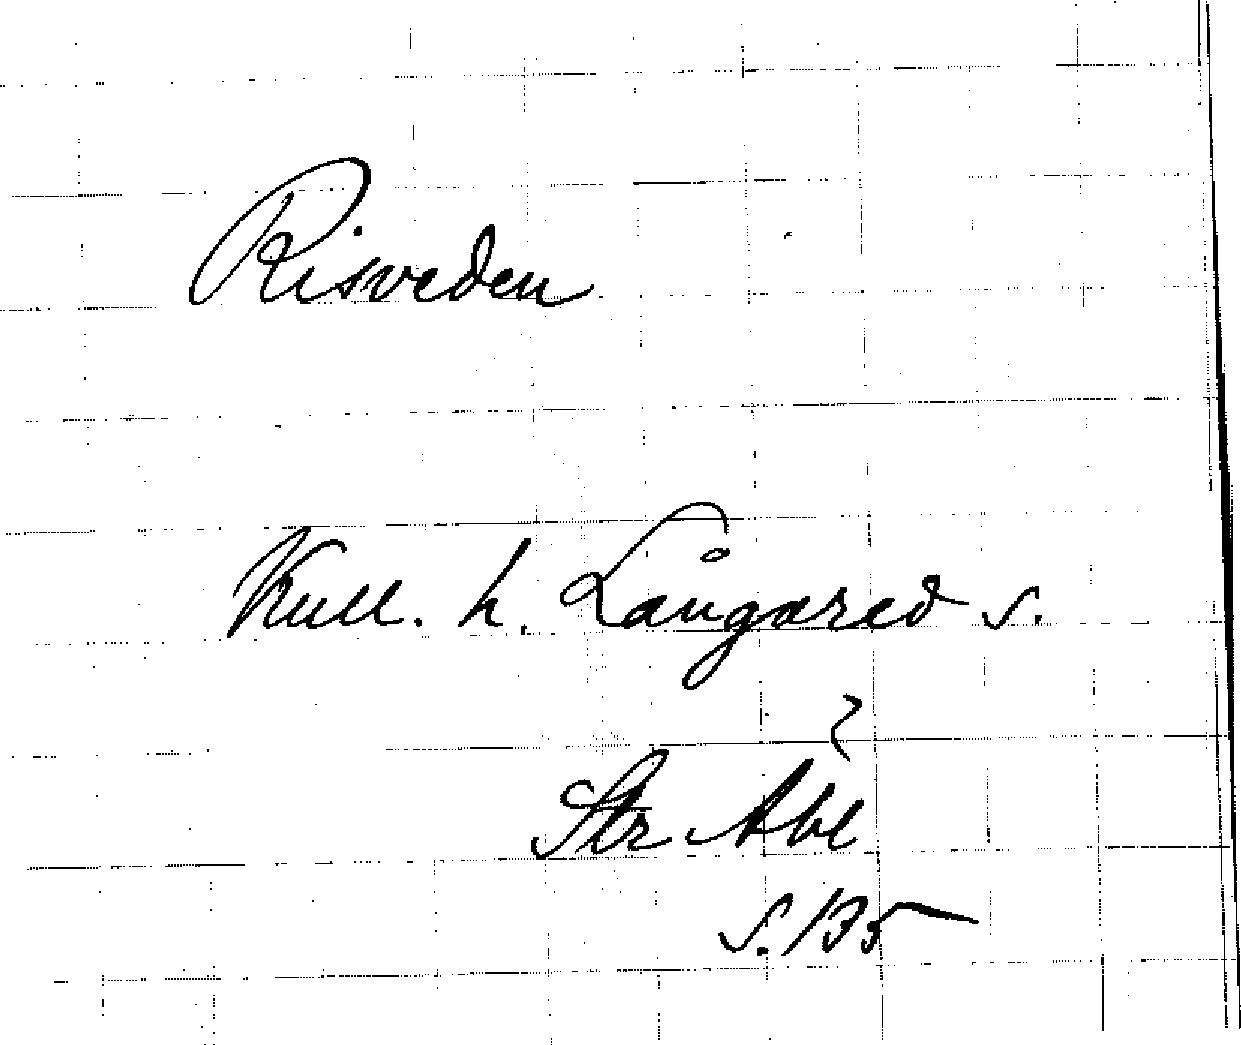 Risveden
Kull. h. Långared s.
?
Str Abl
s. 135